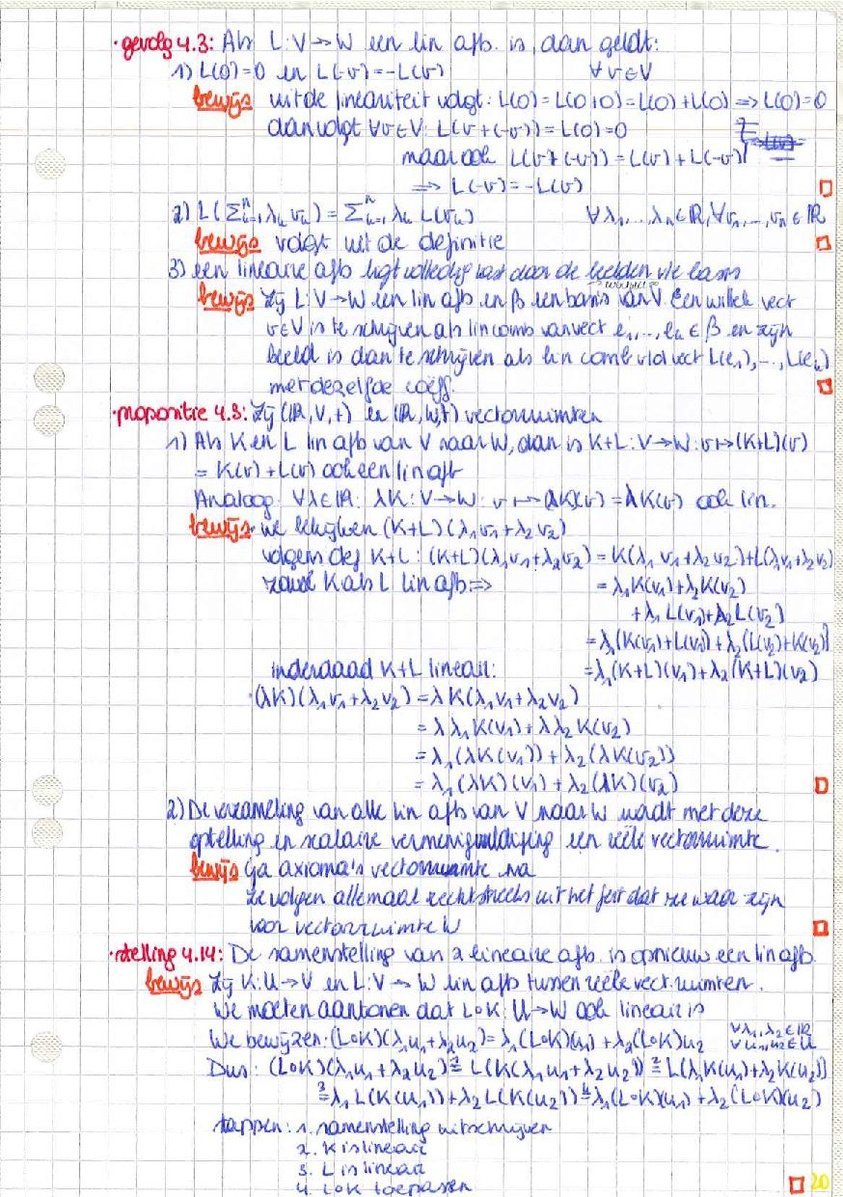 • gevolg 4.3: Als L: V → W een lin afb. is, dan geldt:
1) L(0)=0 en L(-v)=-L(v) ∀v∈V
bewijs uit de lineariteit volgt: L(0)=L(0+0)=L(0)+L(0) => L(0)=0
dan volgt ∀v∈V: L(v+(-v))=L(0)=0
maar ook L(v+(-v))=L(v)+L(-v)
=> L(-v)=-L(v)
2) L(∑ⁿₖ₌₁ λₖ vₖ) = ∑ⁿₖ₌₁ λₖ L(vₖ) ∀λ₁,...,λₙ∈ℝ, ∀v₁,...,vₙ∈ℝ
bewijs volgt uit de definitie
3) een lineaire afb ligt volledig vast door de beelden vie basis
bewijs Zij L: V→W een lin afb en β een basis van V. Een willek vect
v∈V is te schrijven als lin comb van vect e₁,...,eₖ ∈ β en zijn
beeld is dan te schrijven als lin comb v/d vect L(e₁),...,L(eₖ)
met dezelfde coëff.
• propositie 4.8: Zij (ℝ,V,+) en (ℝ,W,+) vectorruimten
1) Als K en L lin afb van V naar W, dan is K+L: V→W: v↦(K+L)(v)
= K(v)+L(v) ook een lin afb
Analoog: ∀λ∈ℝ: λK: V→W: v ↦ (λK)(v)=λK(v) ook lin.
bewijs • We bekijken (K+L)(λ₁v₁+λ₂v₂)
volgens def K+L: (K+L)(λ₁v₁+λ₂v₂) = K(λ₁v₁+λ₂v₂)+L(λ₁v₁+λ₂v₂)
zowel K als L lin afb => = λ₁K(v₁)+λ₂K(v₂)
+λ₁L(v₁)+λ₂L(v₂)
= λ₁(K(v₁)+L(v₁))+λ₂(L(v₂)+K(v₂))
inderdaad K+L lineair: = λ₁(K+L)(v₁)+λ₂(K+L)(v₂)
• (λK)(λ₁v₁+λ₂v₂) = λK(λ₁v₁+λ₂v₂)
= λλ₁K(v₁)+λλ₂K(v₂)
= λ₁(λK(v₁))+λ₂(λK(v₂))
= λ₁(λK)(v₁)+λ₂(λK)(v₂)
2) De verzameling van alle lin afb van V naar W wordt met deze
optelling en scalaire vermenigvuldiging een reële vectorruimte.
bewijs Ga axioma's vectorruimte na
Ze volgen allemaal rechtstreeks uit het feit dat ze waar zijn
voor vectorruimte W
• stelling 4.14: De samenstelling van 2 lineaire afb. is opnieuw een lin afb.
bewijs Zij K: U→V en L: V→W lin afb tussen reële vect. ruimten.
We moeten aantonen dat L∘K: U→W ook lineair is
We bewijzen: (L∘K)(λ₁u₁+λ₂u₂)=λ₁(L∘K)(u₁)+λ₂(L∘K)u₂ ∀λ₁,λ₂∈ℝ
∀u₁,u₂∈U
Dus: (L∘K)(λ₁u₁+λ₂u₂) ¹= L(K(λ₁u₁+λ₂u₂)) ²= L(λ₁K(u₁)+λ₂K(u₂))
³= λ₁L(K(u₁))+λ₂L(K(u₂)) ⁴= λ₁(L∘K)(u₁)+λ₂(L∘K)(u₂)
stappen: 1. samenstelling uitschrijven
2. K is lineair
3. L is lineair
4. L∘K toepassen
20